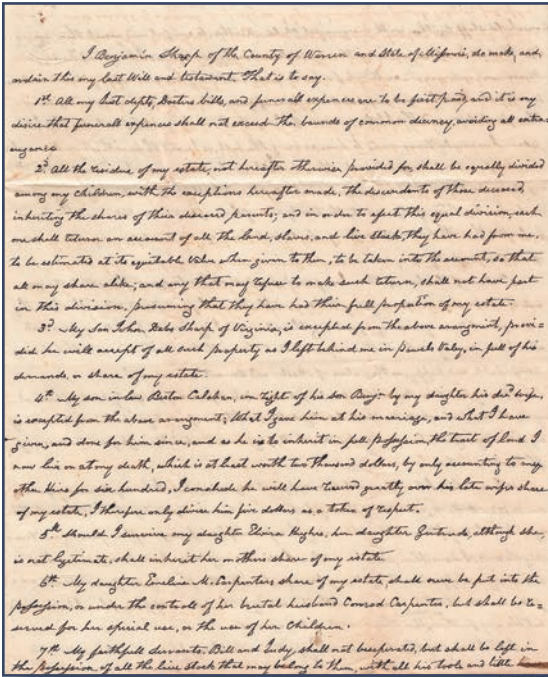 I Benjamin Sharp of the County of Warren and State of Missouri, do make, and
ordain this my last Will and testament. That is to say.
1st All my just depts, Doctors bills, and funerall expences are to be first paid, and it is my
disire that funerall expences shall not exceed the bounds of common decency, avoiding all extra=
vagance.
2d All the residue of my estate, not hereafter otherwise provided for, shall be equally divided
among my children, with the exceptions hereafter made, the descendants of those deceased,
inheriting the shares of their deceased parents; and in order to efect this equal division, each
one shall return an account of all the land, slaves, and live stock, they have had from me,
to be estimated at its equitable value when given to them, to be taken into the account, so that
all may share alike; and any that may refuse to make such return, shall not have part
in this division, presuming that they have had their full propotion of my estate.
3d My Son John Dabs Sharp of Virginia, is excepted from the above arangment, provi=
ded he will accept of all such property as I left behind me in Powels Valey, in full of his
demands, or share of my estate.
4th My son in law, in right of his son Benjn by my daughter his decd wife,
is excepted from the above arrangement; What I gave him at his marriage, and what I have
given, and done for him since, and as he is to inherit in full possession, the tract of land I
now live on at my death, which is at least worth two thousand dollars, by only accounting to my
other Heirs for six hundred, I conclude he will have received greatly over his late wifes share
of my estate, I therefore only divise him five dollars as a token of respect.
5th Should I survive my daughter Elvira Hughes, her daughter Gertrude, although she,
is not legitimate, shall inherit her mothers share of my estate
6th My daughter M. Carpenters share of my estate, shall never be put into the
possession, or under the controll of her brutal husband Conrad Carpenter, but shall be re=
served for her special use, or the use of her Children.
7th My faithfull Servants, Bill and Judy, shall not be seperated, but shall be left in
the possession of all the live stock that may belong to them, with all his tools and little